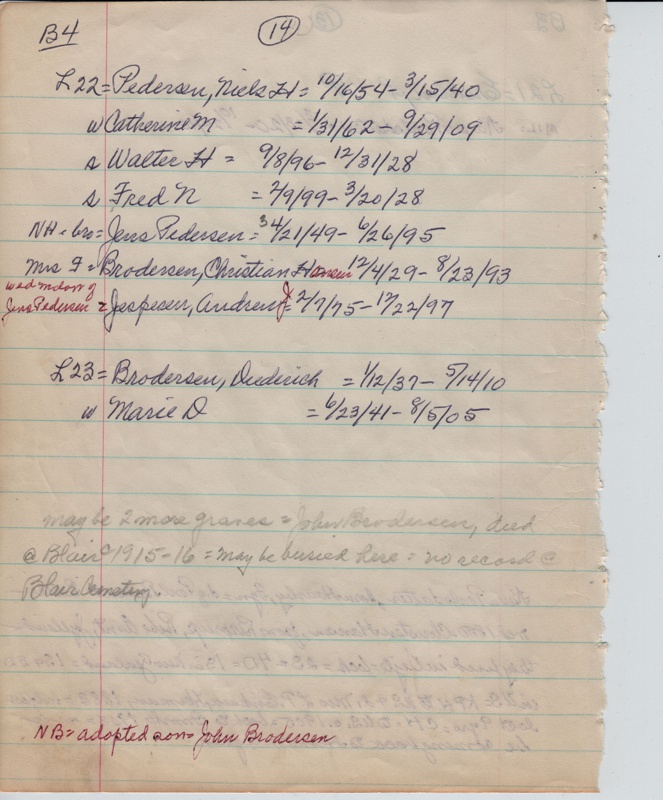 B4 14
L22 = Pedersen, Niels H = 10/16/54 - 3/15/40
w Catherine M = 1/31/62 - 9/29/09
s Walter H = 9/8/96 - 12/31/28
s Fred N = 2/9/99 - 3/20/28
NH = bro = Jens Pedersen = 4/21/49 - 6/26/95
Mrs = Brodersen, Christian Hansen 12/4/29 - 8/23/93
Jens Pedersen = Jespersen, Andrew J = 2/7/75 - 12/22/97
L23 = Brodersen, Diederich = 1/12/37 - 5/14/10
w Marie D = 6/23/41 - 8/5/05
may be 2 more graves = John Brodersen, died
@ Blair c 1915-16 = may be buried here = no record @
Blair Cemetery
NB = adopted son = John Brodersen